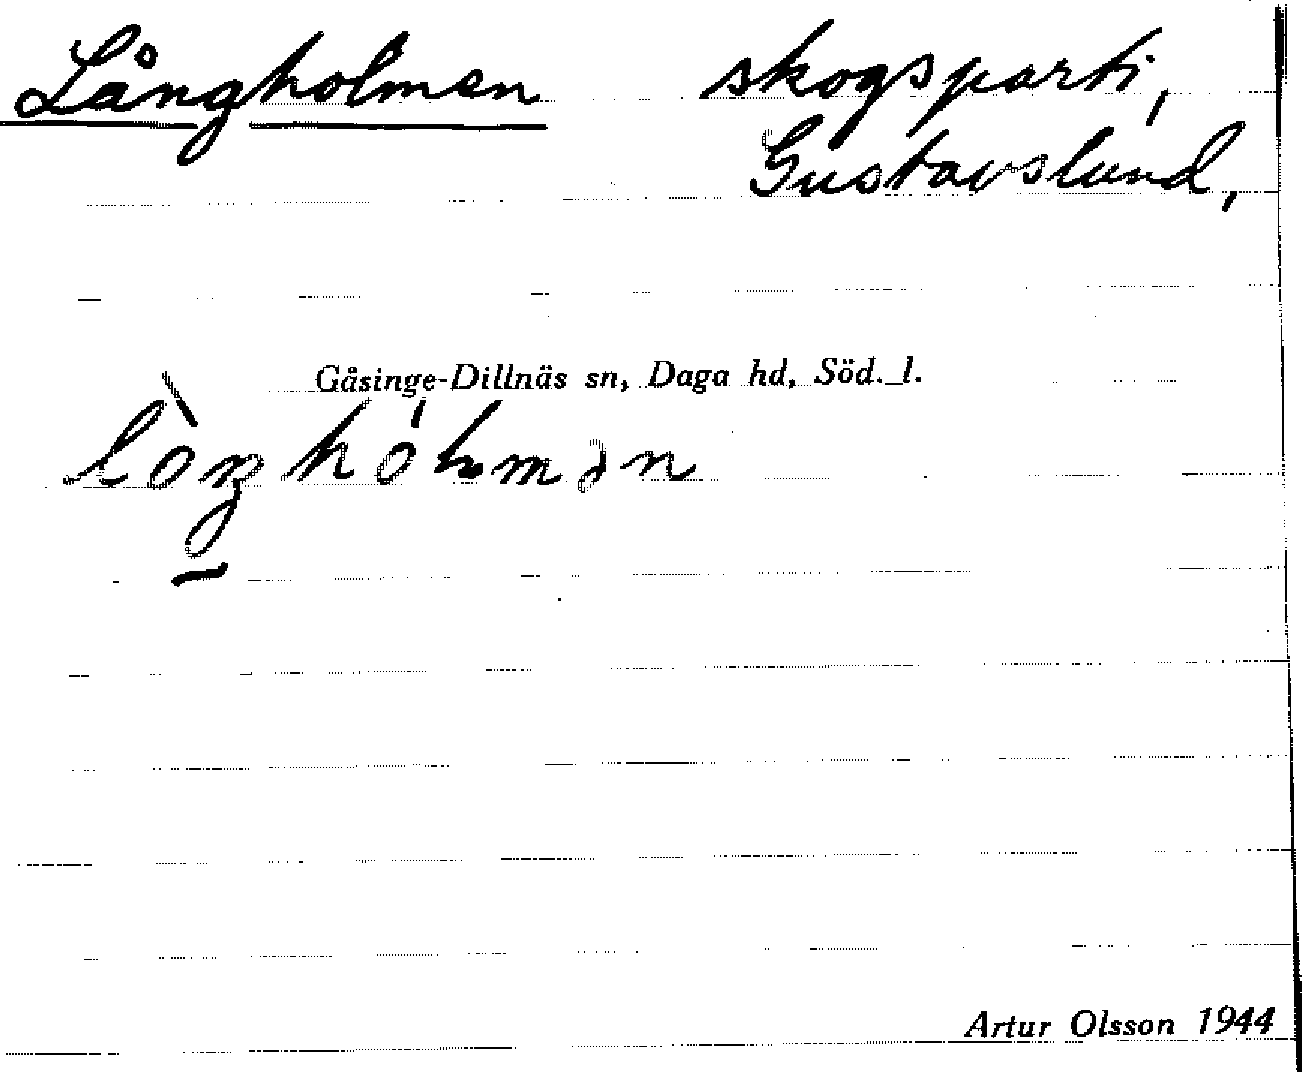 Långholmen skogsparti,
Gustavslund,
Gåsinge-Dillnäs sn, Daga hd, Söd. l.
Artur Olsson 1944